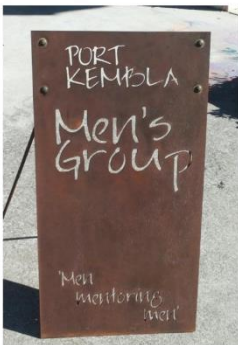 PORT
KEMBLA
Men's
Group
'Men
mentoring
men'